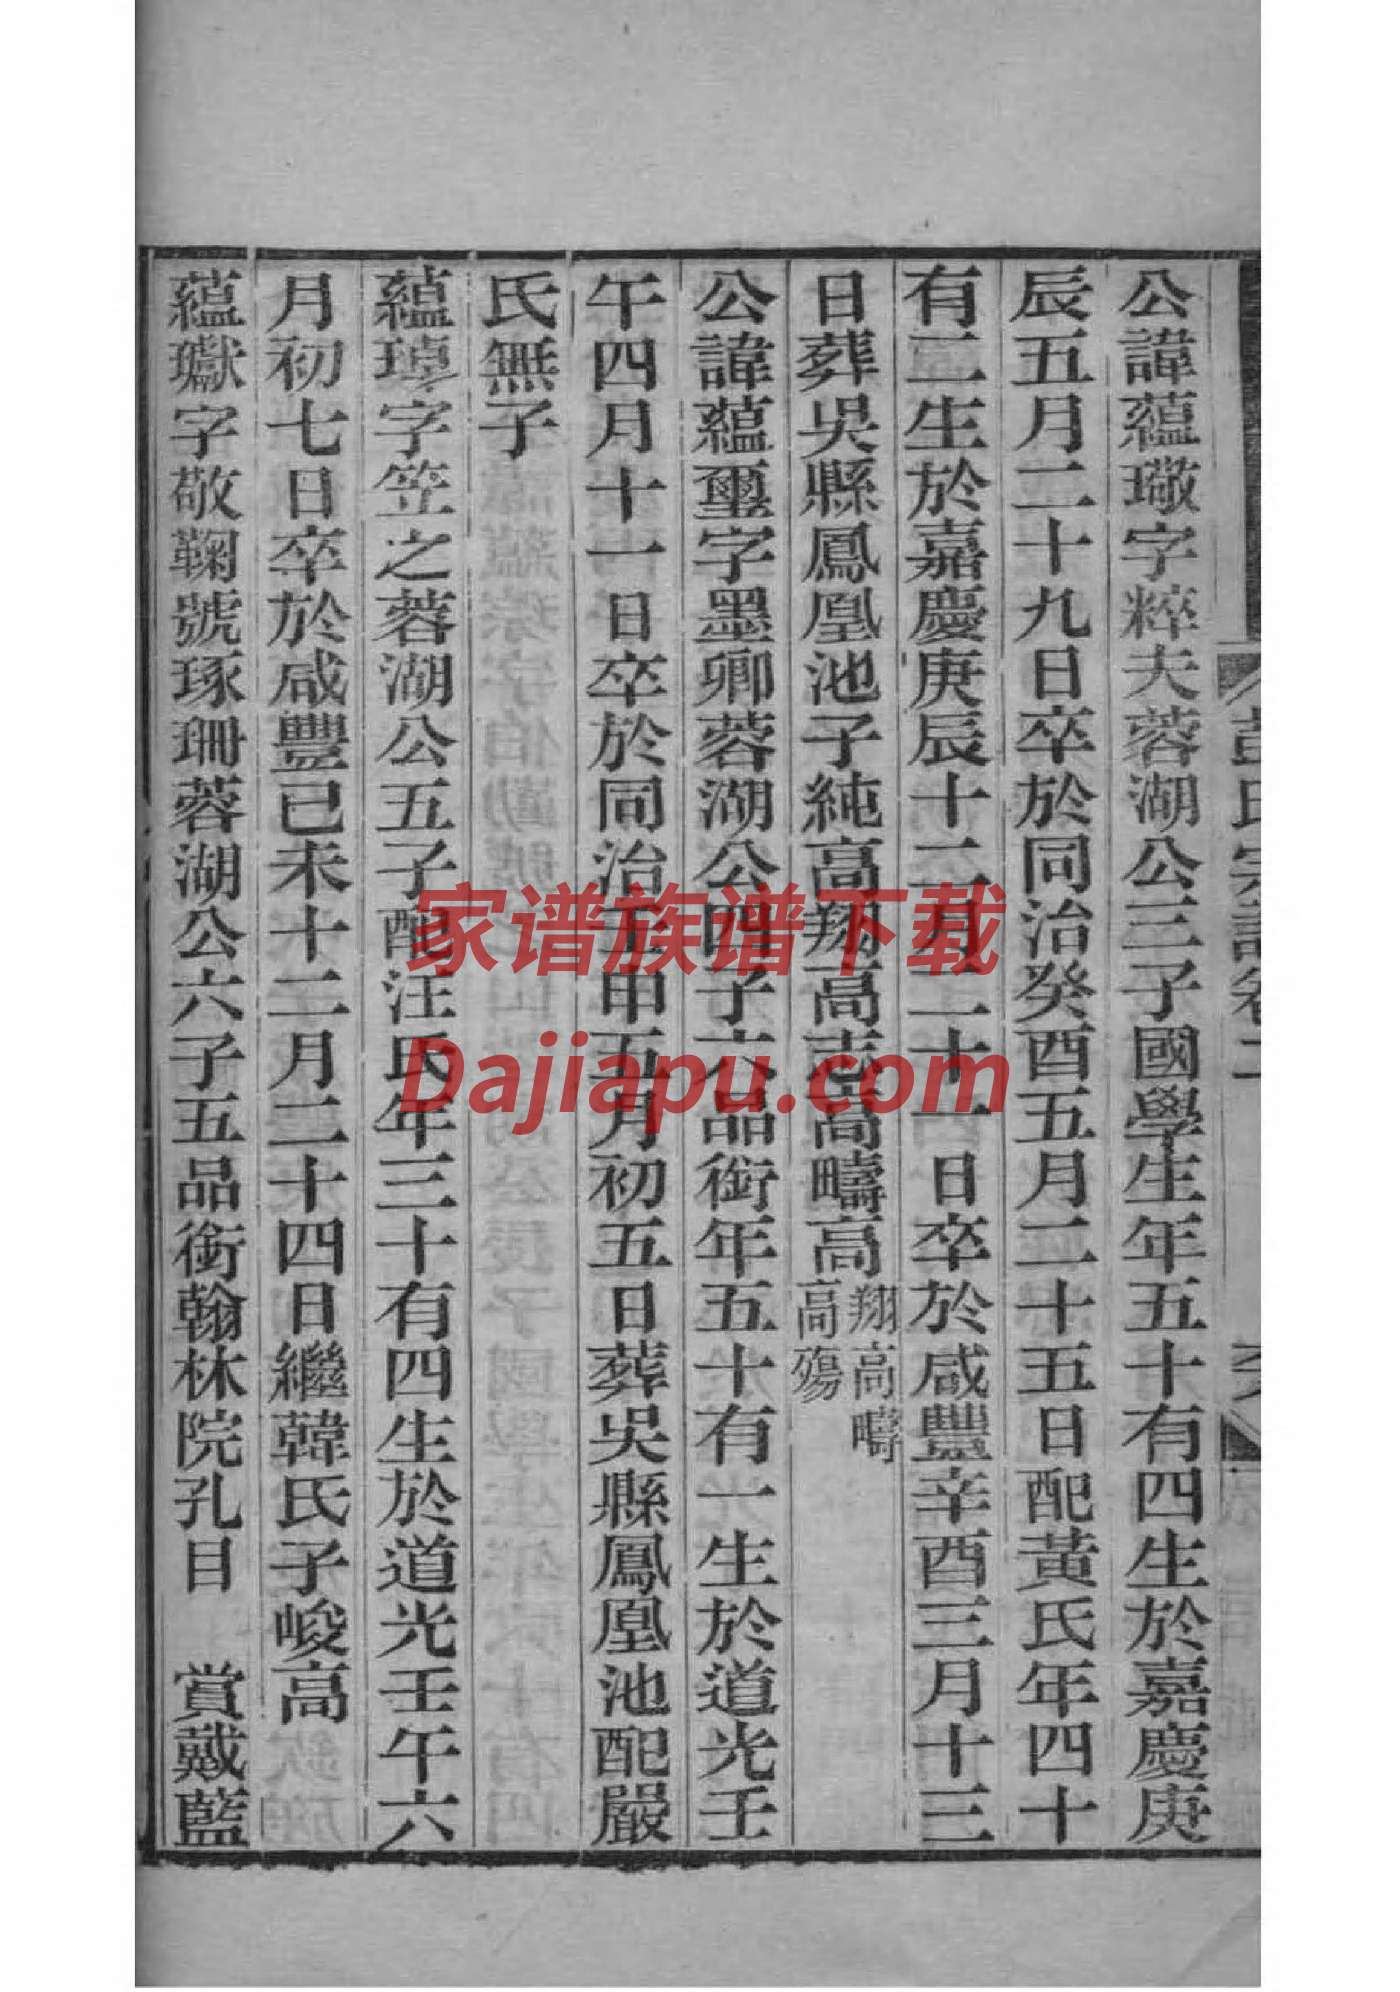 公諱蘊璥字粹夫蓉湖公三子國學生年五十有四生於嘉慶庚
辰五月二十九日卒於同治癸酉五月二十五日配黃氏年四十
有二生於嘉慶庚辰十二月二十一日卒於咸豐辛酉三月十三
日葬吳縣鳳凰池子純高翔高志高疇高翔高疇高殤
公諱蘊璽字墨卿蓉湖公四子六品銜年五十有一生於道光壬
午四月十一日卒於同治壬申五月初五日葬吳縣鳳凰池配嚴
氏無子
蘊字笠之蓉湖公五子配汪氏年三十有四生於道光壬午六
月初七日卒於咸豐已未十二月二十四日繼韓氏子峻高
蘊瓛字敬鞠號琢珊蓉湖公六子五品銜翰林院孔目 賞戴藍
彭氏宗譜卷二
家谱族谱下载
Dajiapu.com